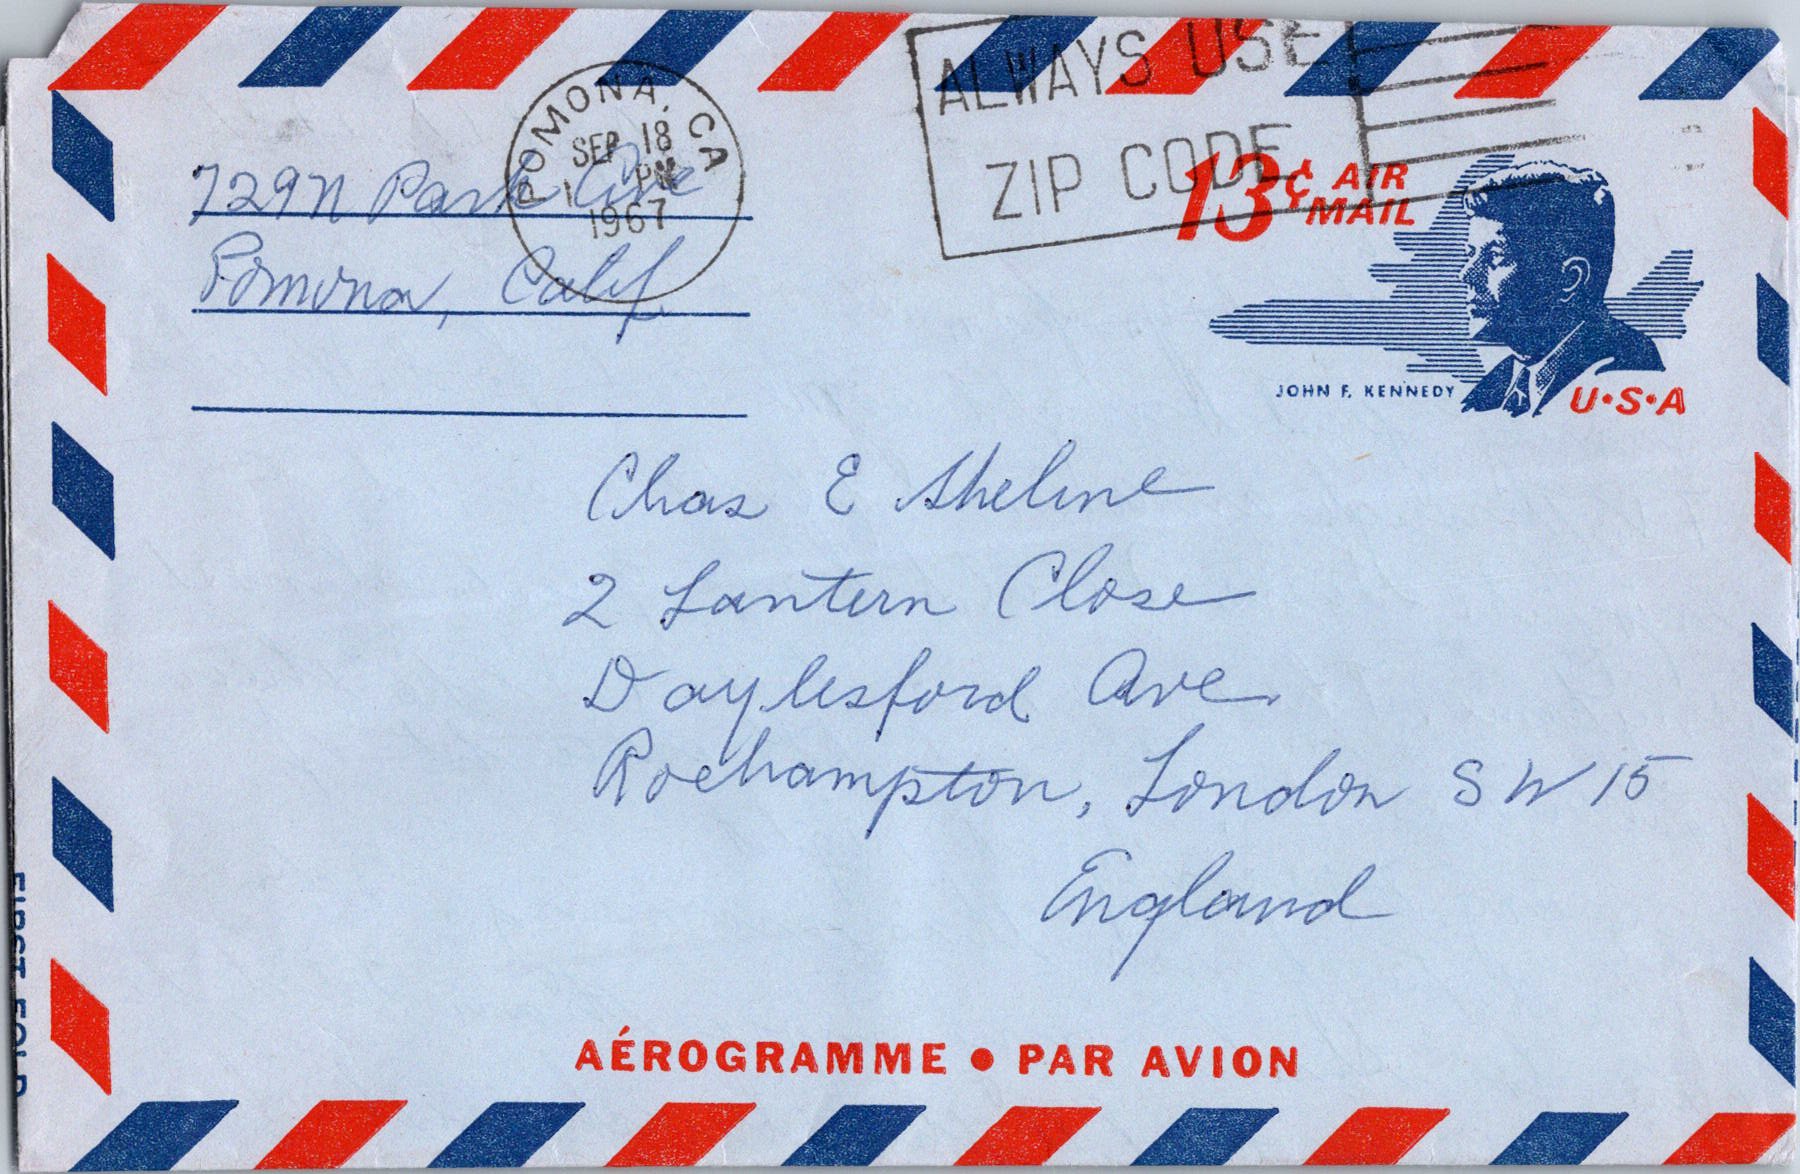 POMONA, CA
SEP 18
1 PM
1967
ALWAYS USE
ZIP CODE
729 N Park Ave
Pomona, Calif.
13¢ AIR
MAIL
JOHN F. KENNEDY
U·S·A
Chas E Sheline
2 Lantern Close
Daylesford Ave
Roehampton, London SW 15
England
FIRST FOLD
AÉROGRAMME • PAR AVION